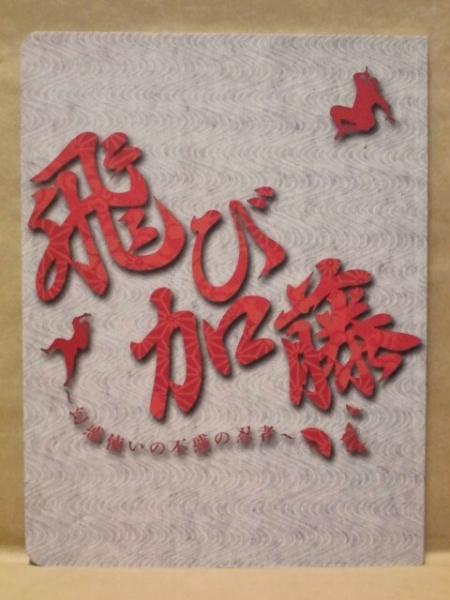 飛び
加藤
～幻惑使いの不惑の忍者～